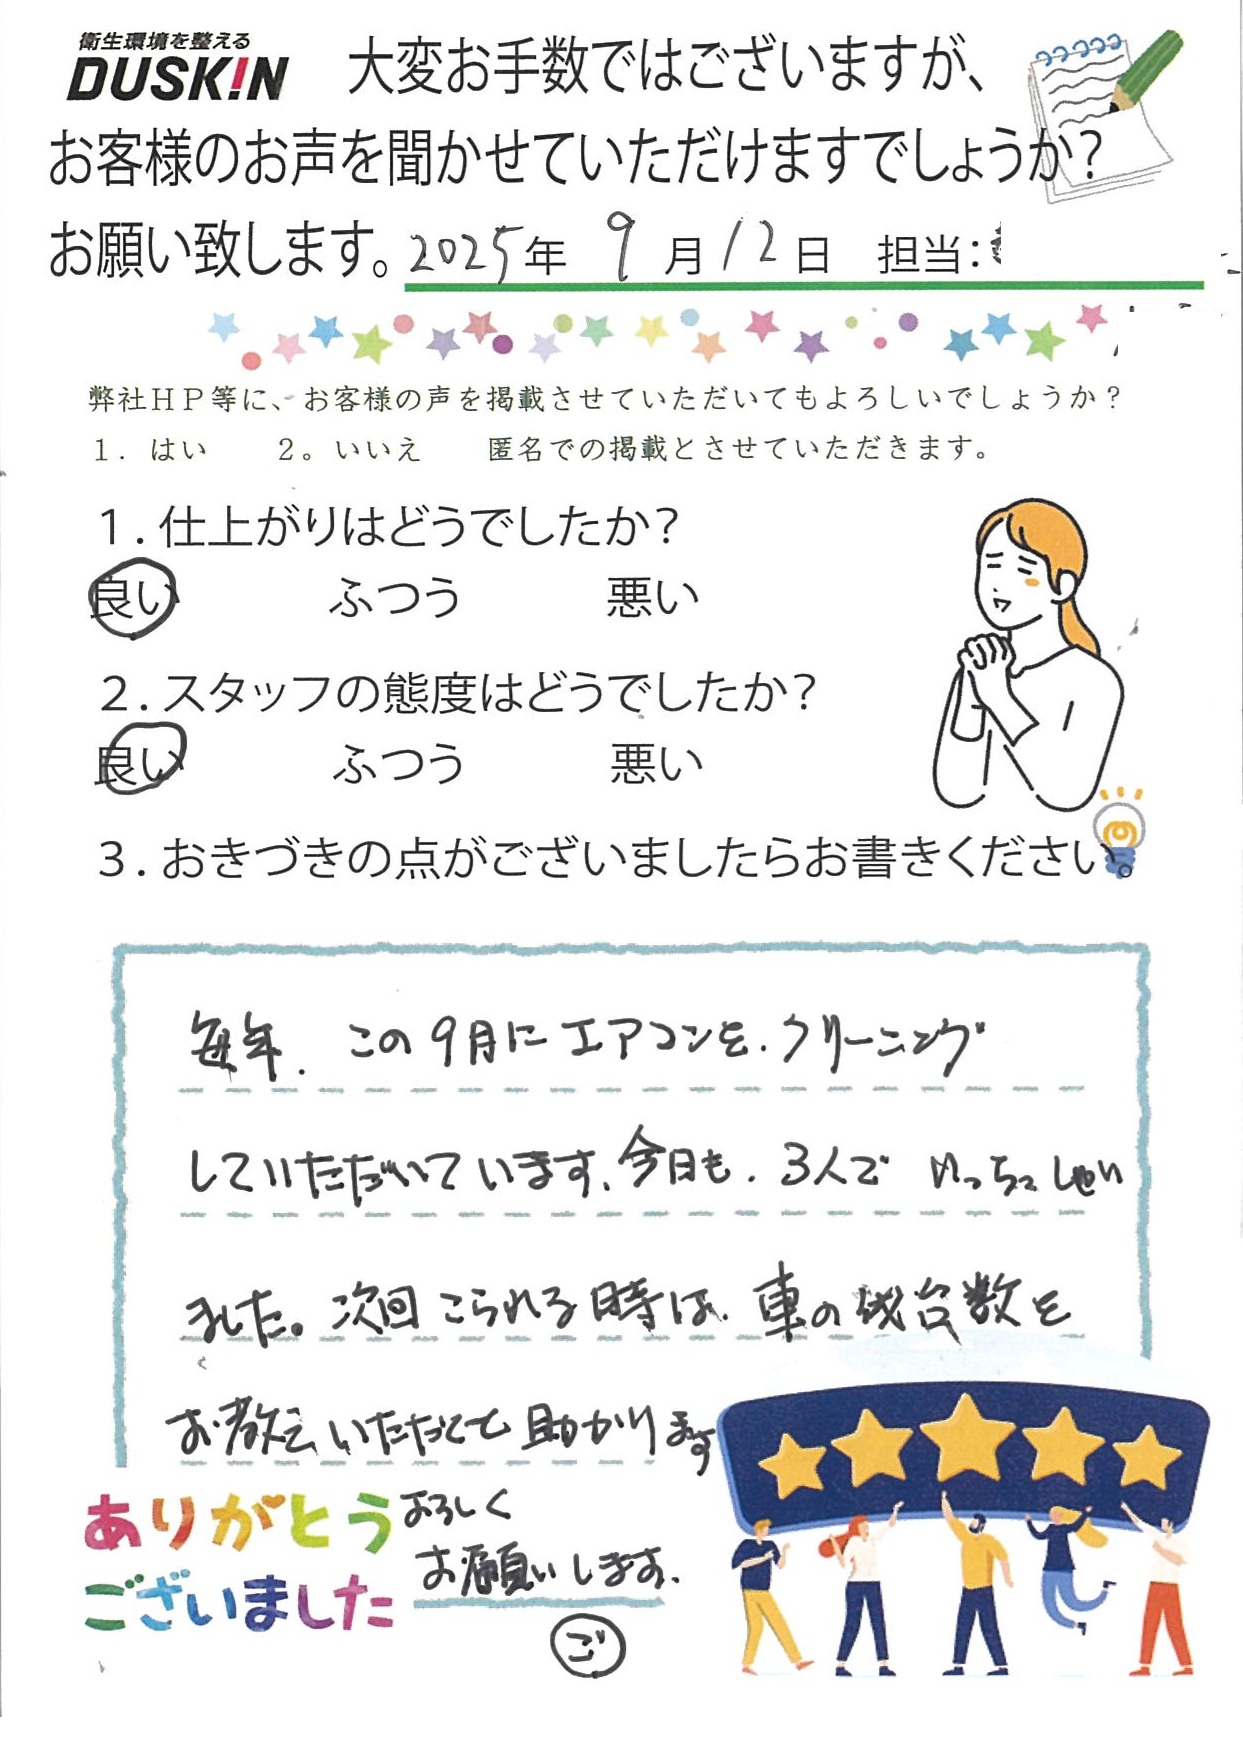 衛生環境を整える
DUSKIN
大変お手数ではございますが、
お客様のお声を聞かせていただけますでしょうか?
お願い致します。2025年 9月12日 担当:
弊社HP等に、お客様の声を掲載させていただいてもよろしいでしょうか?
1. はい 2。いいえ 匿名での掲載とさせていただきます。
1.仕上がりはどうでしたか?
良い ふつう 悪い
2.スタッフの態度はどうでしたか?
良い ふつう 悪い
3.おきづきの点がございましたらお書きください。
毎年.この9月にエアコンを.クリーニング
していただいています.今日も.3人で いっらっしゃい
ました。次回こられる時は.車の 台数を
お教えいただくと助かります
ありがとう
ございました
よろしく
お願いします.
ご